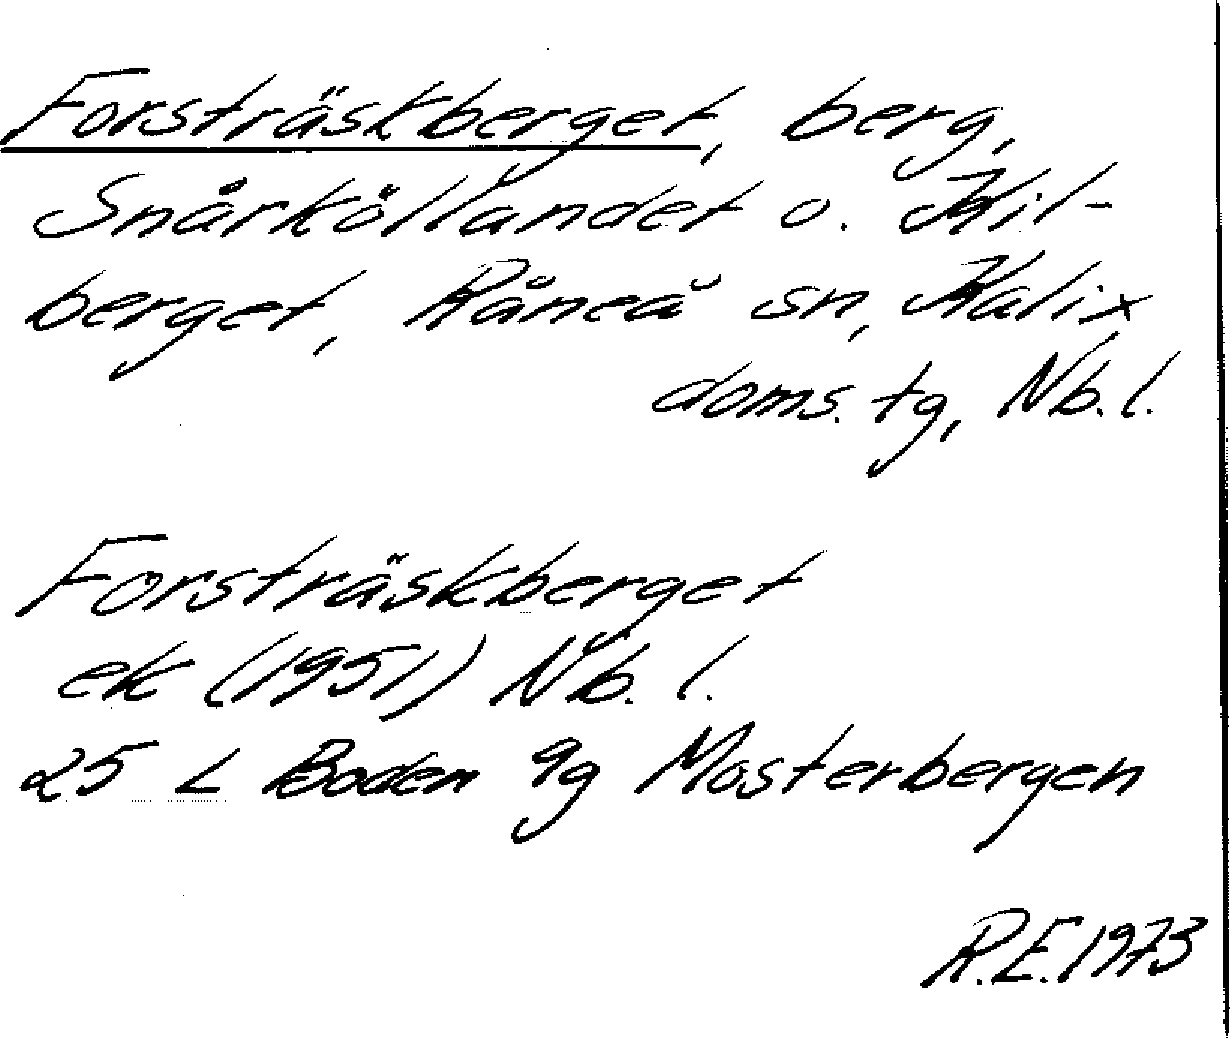 Forsträskberget, berg,
Snårköllandet o. Kil-
berget, Råneå sn, Kalix
doms. tg, Nb. l.
Forsträskberget
ek (1951) Nb. l.
25 L Boden 9g Mosterbergen
R.E. 1973